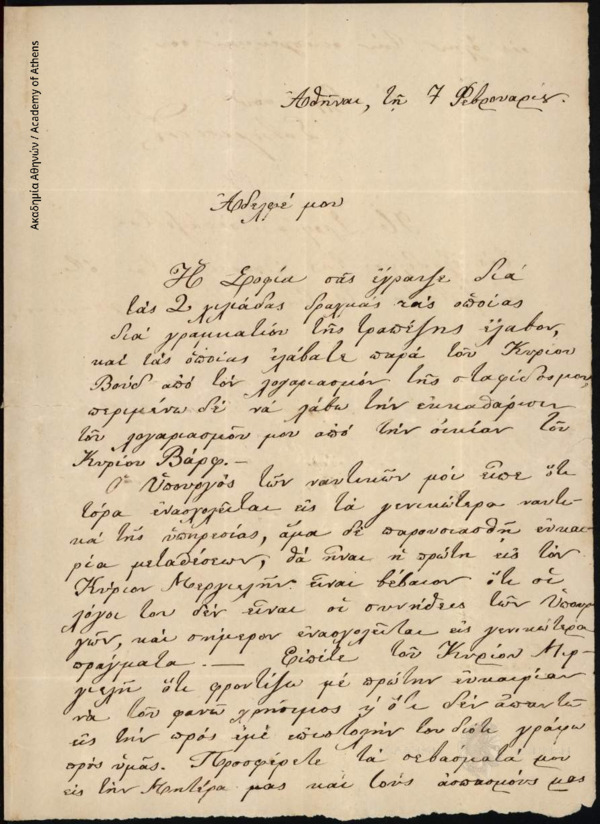 Ακαδημία Αθηνών / Academy of Athens
Ἀθῆναι, τῇ 7 Φεβρουαρίου.
Ἀδελφέ μου
Ἡ Σοφία σᾶς ἔγραψε διά
τάς 2 χιλιάδας δραχμάς τάς ὁποίας
διά γραμματίου τῆς τραπέζης ἔλαβον,
καί τάς ὁποίας ἐλάβατε παρά τοῦ Κυρίου
Βούδ ἀπό τόν λογαριασμόν τῆς σταφίδος μου,
περιμένω δέ νά λάβω τήν ἐκκαθάρισιν
τοῦ λογαριασμοῦ μου ἀπό τήν οἰκίαν τοῦ
Κυρίου Βάρφ. —
Ὁ Ὑπουργός τῶν ναυτικῶν μοί εἶπε ὅτι
τόρα ἐνασχολεῖται εἰς τά γενικώτερα ναυτι-
κά τῆς ὑπηρεσίας, ἅμα δέ παρουσιασθῇ εὐκαι-
ρία μεταθέσεων, θά ἦναι ἡ πρώτη εἰς τόν
Κύριον Μεργιελῆν. εἶναι βέβαιον ὅτι οἱ
λόγοι του δέν εἶναι οἱ συνήθεις τῶν Ὑπουρ-
γῶν, καί σήμερον ἐνασχολεῖται εἰς γενικώτερα
πράγματα. — Εἰπῆτε τοῦ Κυρίου Μερ-
γιελῆ ὅτι φροντίζω μέ πρώτην εὐκαιρίαν
νά τοῦ φανῶ χρήσιμος ἤ ὅτι δέν ἀπαντῶ
εἰς τήν πρός ἐμέ ἐπιστολήν του διότι γράφω
πρός ὑμᾶς. Προσφέρετε τά σεβάσματά μου
εἰς τήν Μητέρα μας καί τούς ἀσπασμούς μας